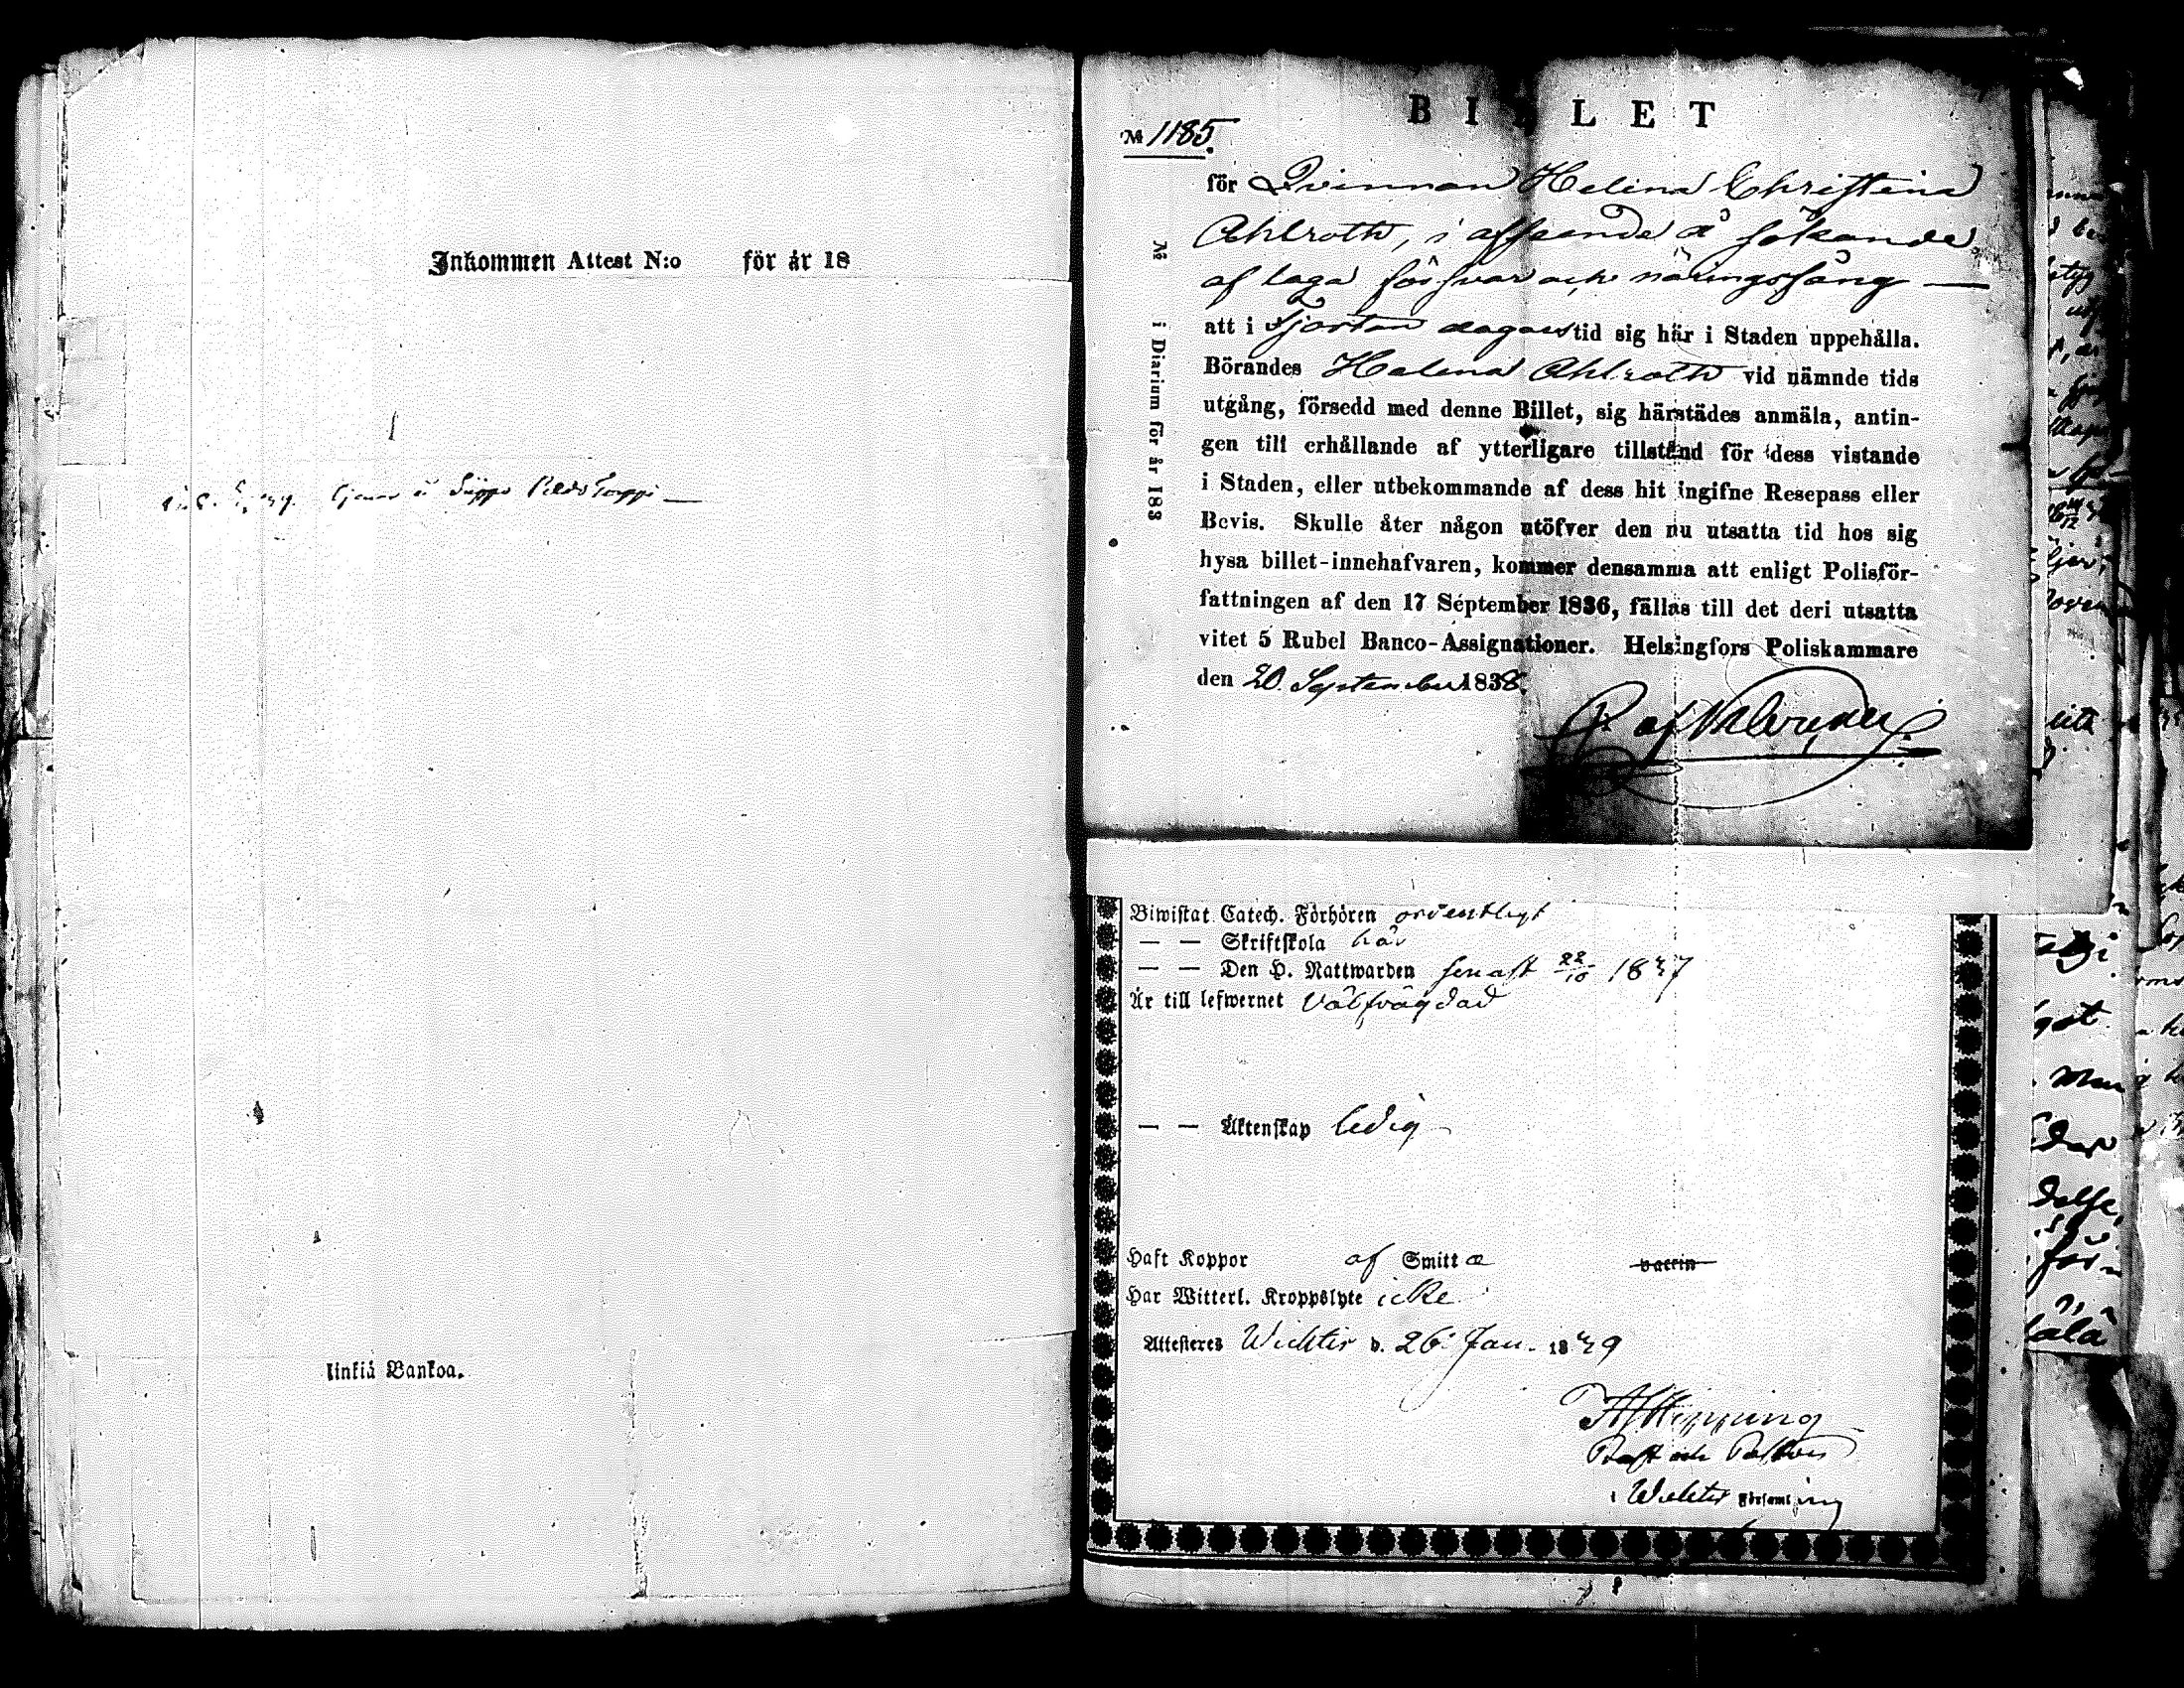 Inkommen Attest N:o för år 18
linkiä Bankoa.
BILLET
№ 1185.
för Qvinnan Helena Christina
Ahlroth, i afseende å sökande
af laga försvar och näringsfång —
att i Fjorton dagars tid sig här i Staden uppehålla.
Börandes Helena Ahlroth vid nämnde tids
utgång, försedd med denne Billet, sig härstädes anmäla, antin-
gen till erhållande af ytterligare tillstånd för dess vistande
i Staden, eller utbekommande af dess hit ingifne Resepass eller
Bevis. Skulle åter någon utöfver den nu utsatta tid hos sig
hysa billet-innehafvaren, kommer densamma att enligt Polisför-
fattningen af den 17 September 1836, fällas till det deri utsatta
vitet 5 Rubel Banco-Assignationer. Helsingfors Poliskammare
den 20. September 1838.
№ i Diarium för år 183
Biwistat Catech. Förhören ordentligt
— — Skriftskola här
— — Den H. Nattwarden senast 22/10 1837
Är till lefwernet välfrägdad
— — Äktenskap ledig
Haft Koppor af Smitta vaccin
Har Witterl. Kroppslyte icke
Attesteres Wichtis d. 26 Jan. 1839
Hipping
Prost och Pastor
i Wichtis Församling